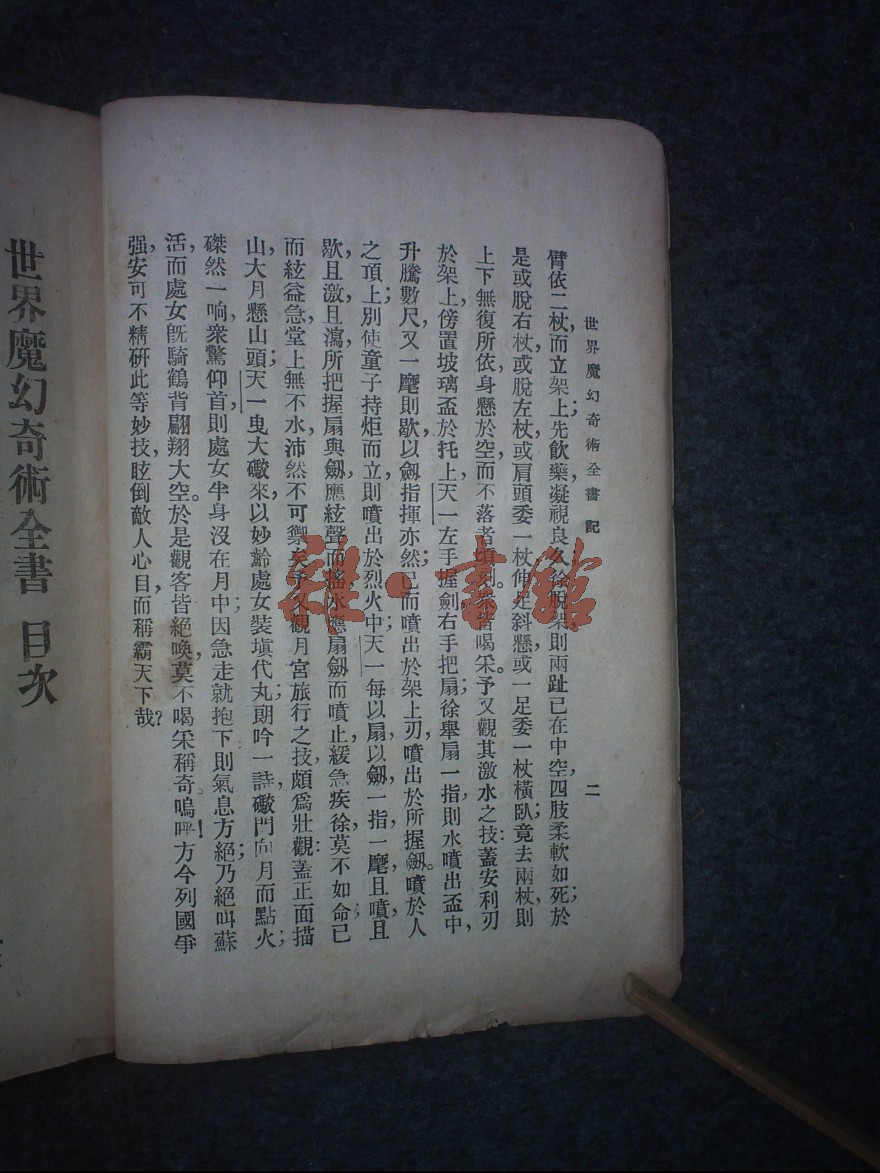 世界魔幻奇術全書 記
二
臂依二杖，而立架上；先飲藥，凝視良久，徐脫架，則兩趾已在中空，四肢柔軟如死；於
是或脫右杖，或脫左杖，或肩頭委一杖，伸足斜懸，或一足委一杖橫臥；竟去兩杖，則
上下無復所依，身懸於空而不落者頃刻。衆皆喝采。予又觀其激水之技：蓋安利刃
於架上，傍置玻璃盃於托上，天一左手握劍，右手把扇，徐舉扇一指，則水噴出盃中，
升騰數尺，又一麾則歇；以劍指揮亦然。已而噴出於架上刃，噴出於所握劔。噴於人
之頂上；別使童子持炬而立，則噴出於烈火中，天一每以扇以劔，一指一麾，且噴且
歇，且激且瀉，所把握扇與劔，應絃聲而搖，水應扇劔而噴止，緩急疾徐，莫不如命；已
而絃益急，堂上無不水，沛然不可禦矣。予又觀月宮旅行之技，頗爲壯觀：蓋正面描
山，大月懸山頭；天一曳大礮來，以妙齡處女裝塡代丸，朗吟一詩，礮門向月而點火；
磔然一响，衆驚仰首，則處女半身沒在月中；因急走就抱下，則氣息方絕，乃絕叫蘇
活，而處女旣騎鶴背，翩翔大空。於是觀客皆絕喚，莫不喝采稱奇。嗚呼！方今列國爭
强，安可不精研此等妙技，眩倒敵人心目，而稱霸天下哉？
世界魔幻奇術全書 目次
雜·書館